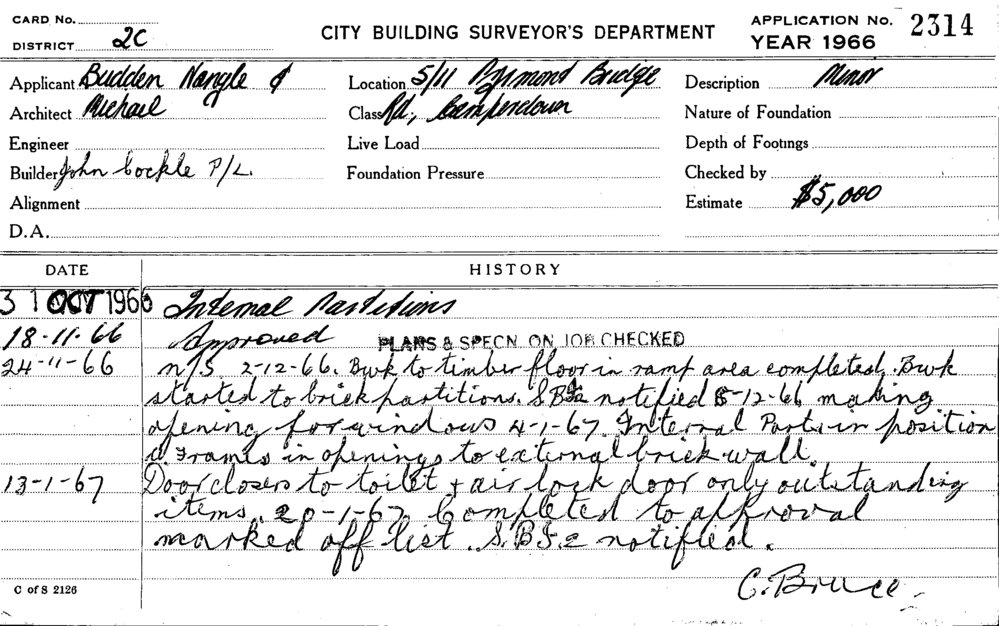 CARD No.
DISTRICT 2C
CITY BUILDING SURVEYOR'S DEPARTMENT
APPLICATION No. 2314
YEAR 1966
Applicant Budden Nangle &
Architect Michael
Engineer
Builder John Cockle P/L.
Alignment
D.A.
Location 5/11 Pyrmont Bridge
Class Rd, Camperdown
Live Load
Foundation Pressure
Description Minor
Nature of Foundation
Depth of Footings
Checked by
Estimate $5,000
DATE HISTORY
31 OCT 1966 Internal Partitions
18-11-66 Approved PLANS & SPECN. ON JOB CHECKED
24-11-66 n/S 2-12-66. Bwk to timber floor in ramp area completed. Bwk
started to brick partitions. SBI2 notified 8-12-66 making
opening for windows 4-1-67. Internal Parts. in position
Frames in openings to external brick wall.
13-1-67 Door closers to toilet + air lock door only outstanding
items. 20-1-67 Completed to approval
marked off list. S.B.I.2 notified.
C. Bruce.
C of S 2126